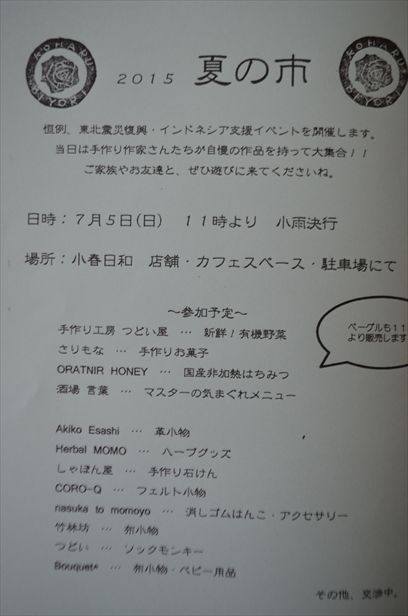 KOHARU BIYORI
KOHARU BIYORI
2015 夏の市
恒例、東北震災復興・インドネシア支援イベントを開催します。
当日は手作り作家さんたちが自慢の作品を持って大集合!!
ご家族やお友達と、ぜひ遊びに来てくださいね。
日時:7月5日(日) 11時より 小雨決行
場所:小春日和 店舗・カフェスペース・駐車場にて
~参加予定~
手作り工房 つどい屋 … 新鮮!有機野菜
さりもな … 手作りお菓子
ORATNIR HONEY … 国産非加熱はちみつ
酒場 言葉 … マスターの気まぐれメニュー
ベーグルも11
より販売します
Akiko Esashi … 革小物
Herbal MOMO … ハーブグッズ
しゃぼん屋 … 手作り石けん
CORO-Q … フェルト小物
nasuka to momoyo … 消しゴムはんこ・アクセサリー
竹林坊 … 布小物
つどい … ソックモンキー
Bouquet* … 布小物・ベビー用品
その他、交渉中。